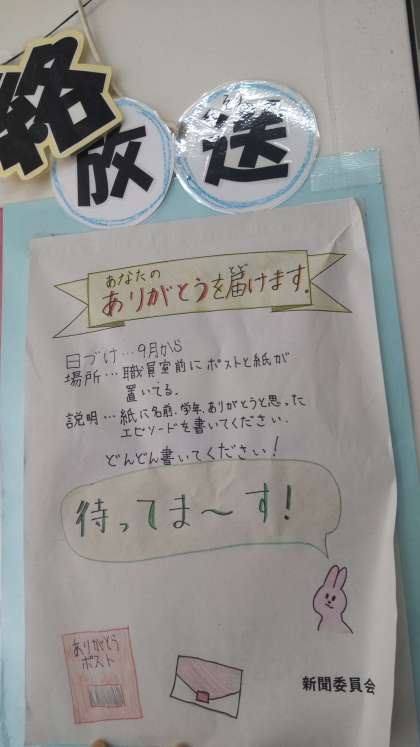 絡
放送
そう
あなたの
ありがとうを届けます。
とど
日づけ…9月から
場所…職員室前にポストと紙が
置いてる。
説明…紙に名前.学年.ありがとうと思った
エピソードを書いてください.
どんどん書いてください!
待ってま～す!
ありがとう
ポスト
新聞委員会